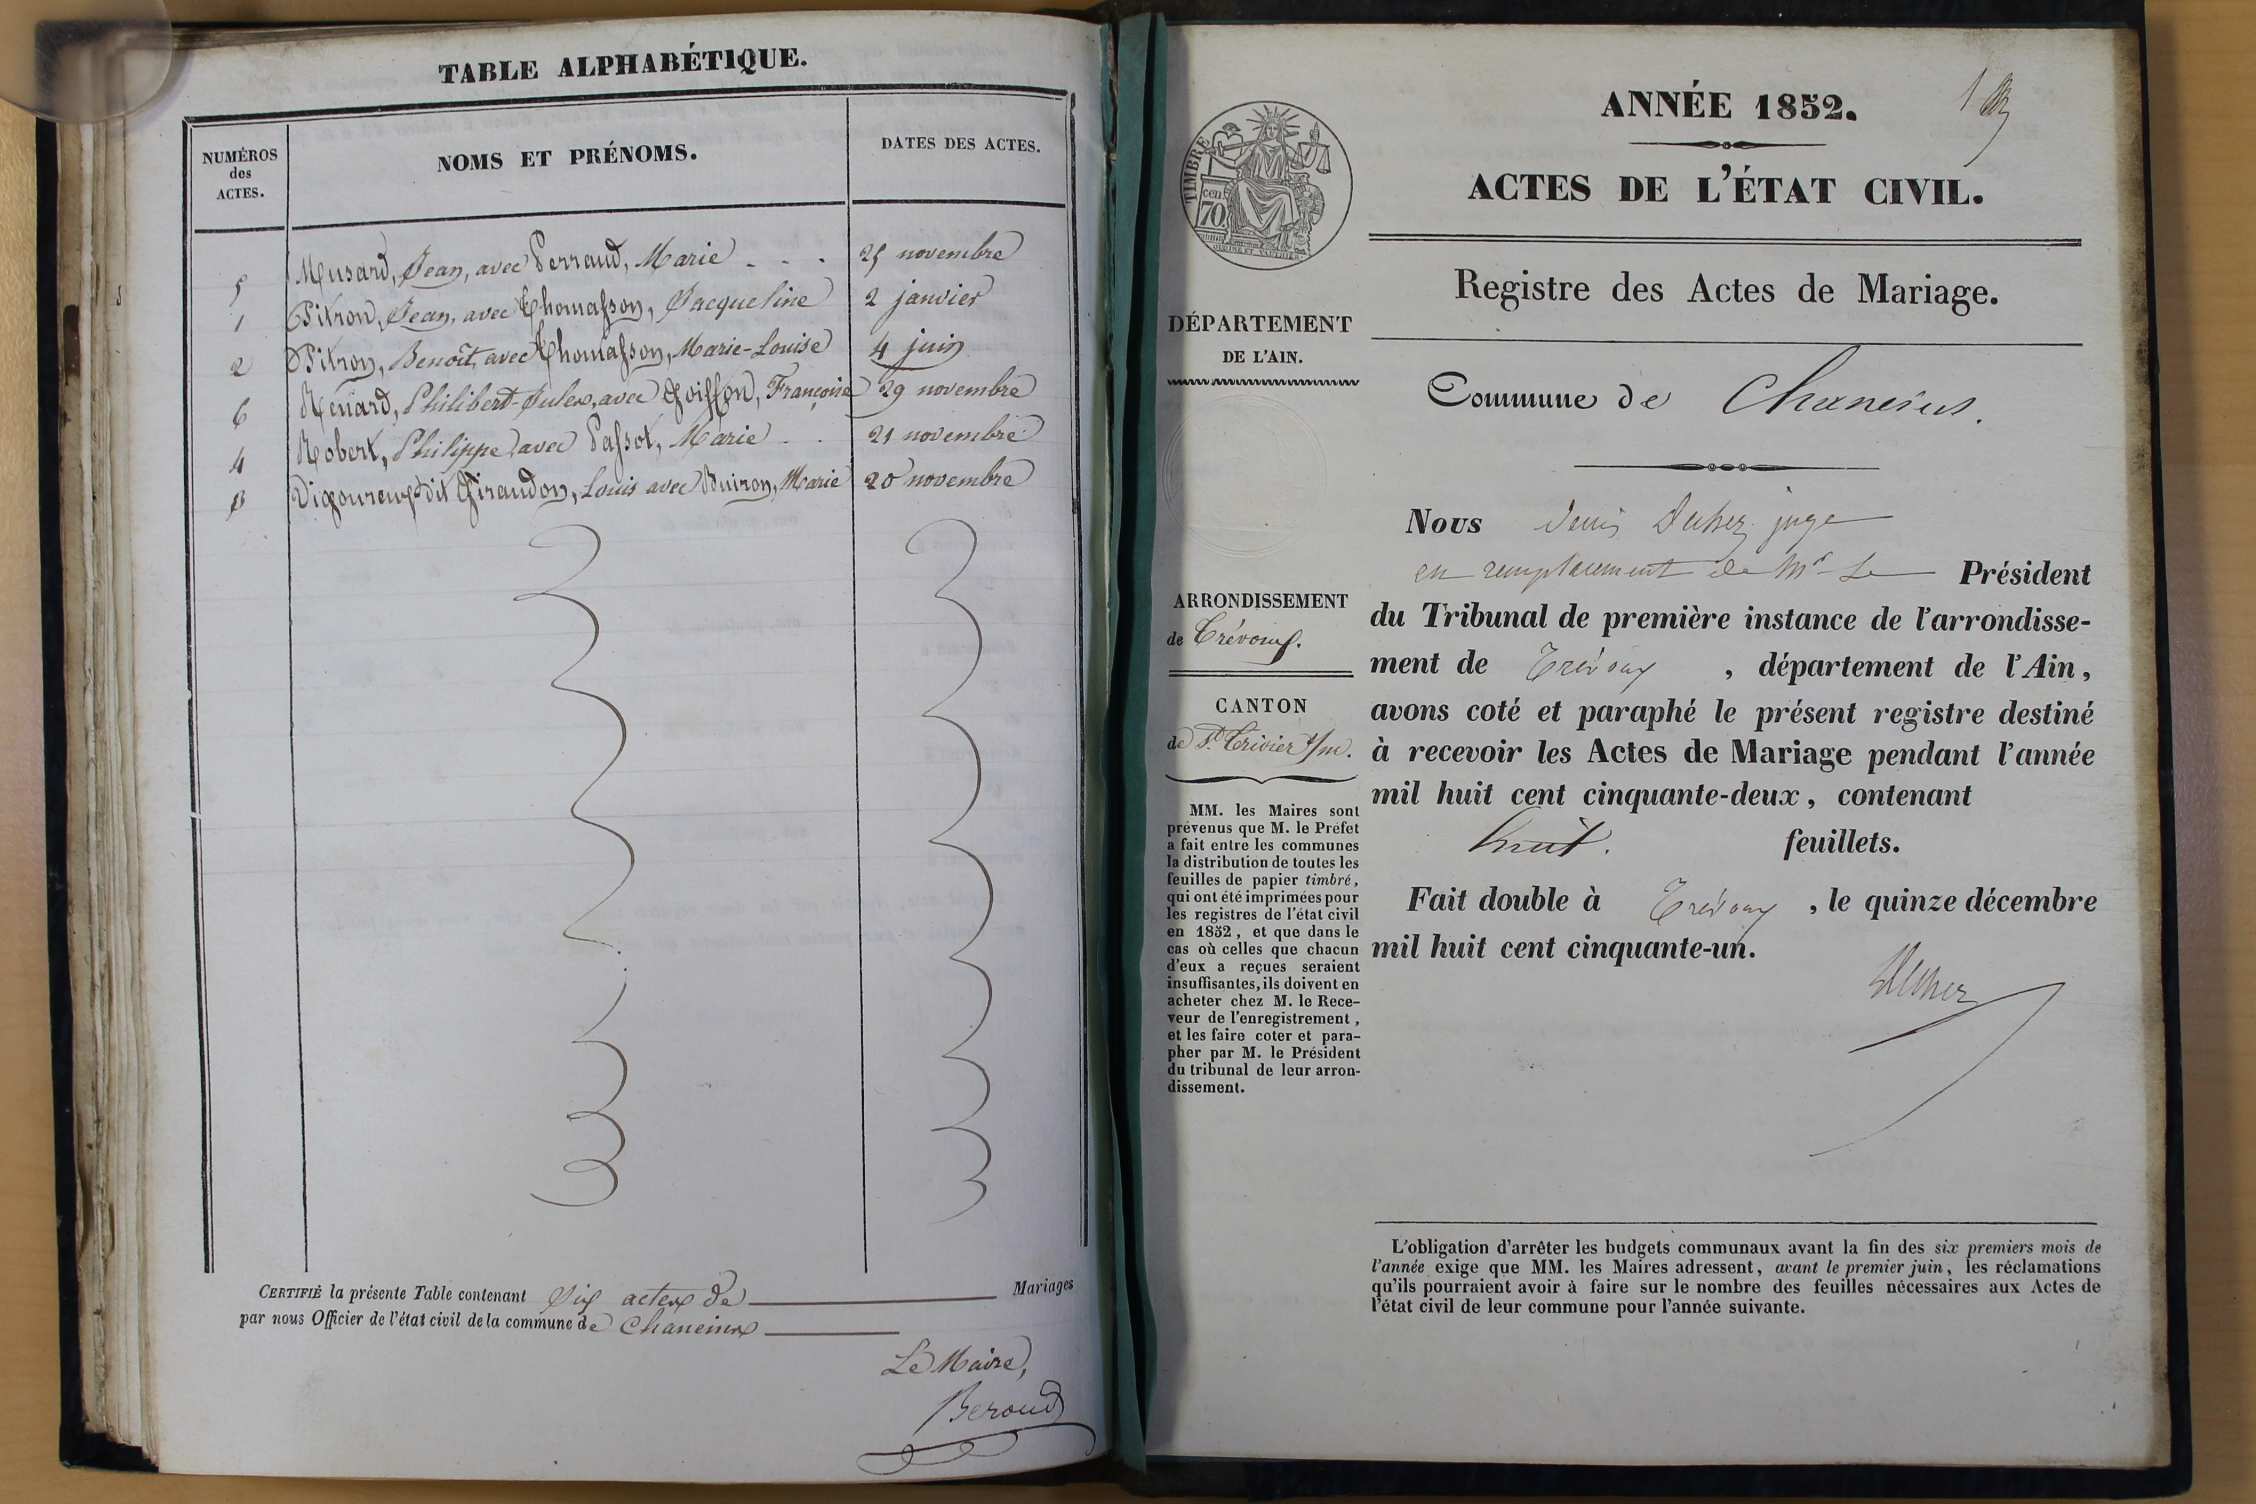 TABLE ALPHABÉTIQUE.
NUMÉROS
des
ACTES.
NOMS ET PRÉNOMS.
DATES DES ACTES.
5 Musard, Jean, avec Perraud, Marie - - - 25 novembre
1 Pitron, Jean, avec Thomasson, Jacqueline 2 janvier
2 Pitron, Benoît, avec Thomasson, Marie-Louise 4 juin
6 Renard, Philibert-Jules, avec Goiffon, Françoise 29 novembre
4 Robert, Philippe, avec Passot, Marie - - 21 novembre
3 Vigoureux dit Giraudon, Louis avec Buiron, Marie 20 novembre
CERTIFIÉ la présente Table contenant Six actes de Mariages
par nous Officier de l'état civil de la commune de Chaneins
Le Maire,
Beroud
1
ANNÉE 1852.
ACTES DE L'ÉTAT CIVIL.
Registre des Actes de Mariage.
Commune de Chaneins.
TIMBRE
70 cen
DÉPARTEMENT
DE L'AIN.
ARRONDISSEMENT
de Trévoux.
CANTON
de St. Trivier s/m.
MM. les Maires sont
prévenus que M. le Préfet
a fait entre les communes
la distribution de toutes les
feuilles de papier timbré,
qui ont été imprimées pour
les registres de l'état civil
en 1852, et que dans le
cas où celles que chacun
d'eux a reçues seraient
insuffisantes, ils doivent en
acheter chez M. le Rece-
veur de l'enregistrement,
et les faire coter et para-
pher par M. le Président
du tribunal de leur arron-
dissement.
Nous Denis juge
en remplacement de Mr Le Président
du Tribunal de première instance de l'arrondisse-
ment de Trévoux, département de l'Ain,
avons coté et paraphé le présent registre destiné
à recevoir les Actes de Mariage pendant l'année
mil huit cent cinquante-deux, contenant
huit. feuillets.
Fait double à Trévoux, le quinze décembre
mil huit cent cinquante-un.
L'obligation d'arrêter les budgets communaux avant la fin des six premiers mois de
l'année exige que MM. les Maires adressent, avant le premier juin, les réclamations
qu'ils pourraient avoir à faire sur le nombre des feuilles nécessaires aux Actes de
l'état civil de leur commune pour l'année suivante.